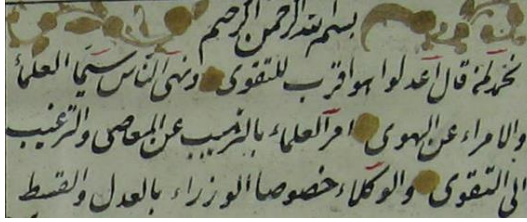 بسم الله الرحمن الرحيم
نحمد لمن قال اعدلوا هو اقرب للتقوى ونهى الناس سيما العلماء
والامراء عن الهوى امر العلماء بالترهيب عن المعاصى والترغيب
الى التقوى والوكلاء خصوصا الوزراء بالعدل والقسط